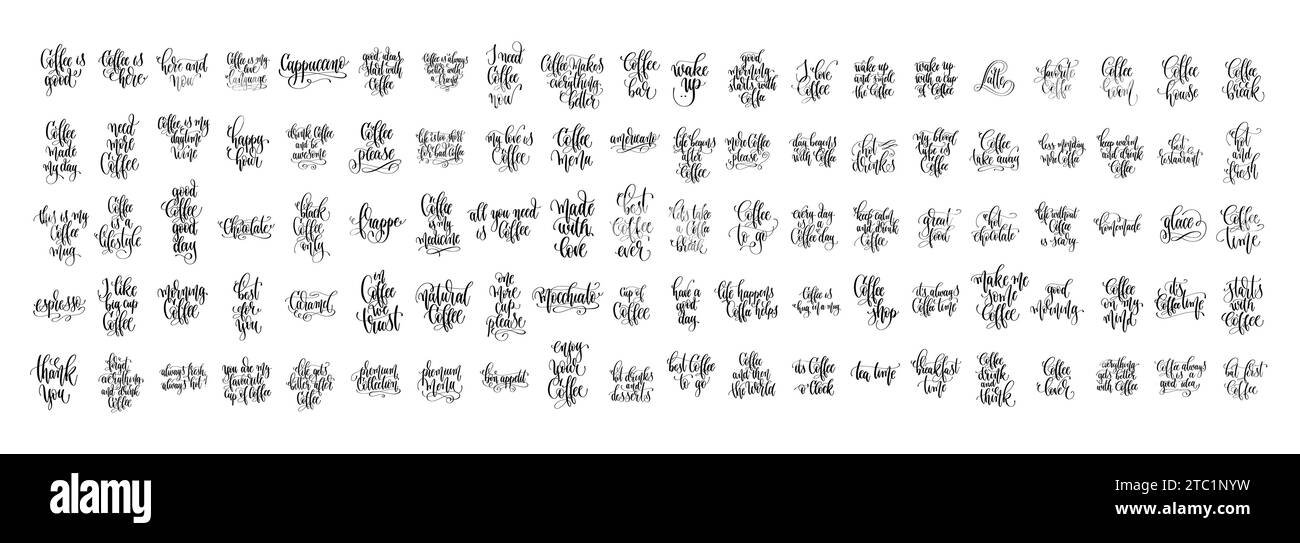 Coffee is good
Coffee is here
here and now
Coffee is my love language
Cappuccino
good ideas start with Coffee
Coffee is always better with a friend
I need Coffee now
Coffee makes everything better
Coffee bar
wake up
good morning starts with Coffee
I love Coffee
wake up and smell the Coffee
wake up with a cup of Coffee
Latte
favorite Coffee
Coffee room
Coffee house
Coffee break
Coffee made my day
need more Coffee
Coffee is my daytime wine
happy hour
drink Coffee and be awesome
Coffee please
life is too short for bad Coffee
my love is Coffee
Coffee menu
americano
life begins after Coffee
more Coffee please
day begins with Coffee
hot drinks
my blood type is Coffee
Coffee take away
less monday more Coffee
keep warm and drink Coffee
best restaurant
hot and fresh
this is my Coffee mug
Coffee is a lifestyle
good Coffee good day
Chocolate
black Coffee only
frappe
Coffee is my medicine
all you need is Coffee
made with love
best Coffee ever
let's take a Coffee break
Coffee to go
every day is a Coffee day
keep calm and drink Coffee
great food
hot chocolate
life without Coffee is scary
homemade
glace
Coffee time
espresso
I like big cup of Coffee
morning Coffee
best for you
Caramel
in Coffee we trust
natural Coffee
one more cup please
mocchiato
Cup of Coffee
have a good day
life happens Coffee helps
Coffee is a hug in a mug
Coffee shop
it's always Coffee time
make me some Coffee
good morning
Coffee on my mind
it's Coffee time
starts with Coffee
thank you
forget everything and drink Coffee
always fresh always hot!
you are my favourite cup of Coffee
life gets better after Coffee
premium Collection
premium menu
bon appetit
enjoy your Coffee
hot drinks and desserts
best Coffee to go
Coffee and then the world
it's Coffee o'clock
tea time
breakfast time
Coffee drink and think
Coffee lover
everything gets better with Coffee
Coffee always is a good idea
but first Coffee
alamy
Image ID: 2TC1NYW
www.alamy.com